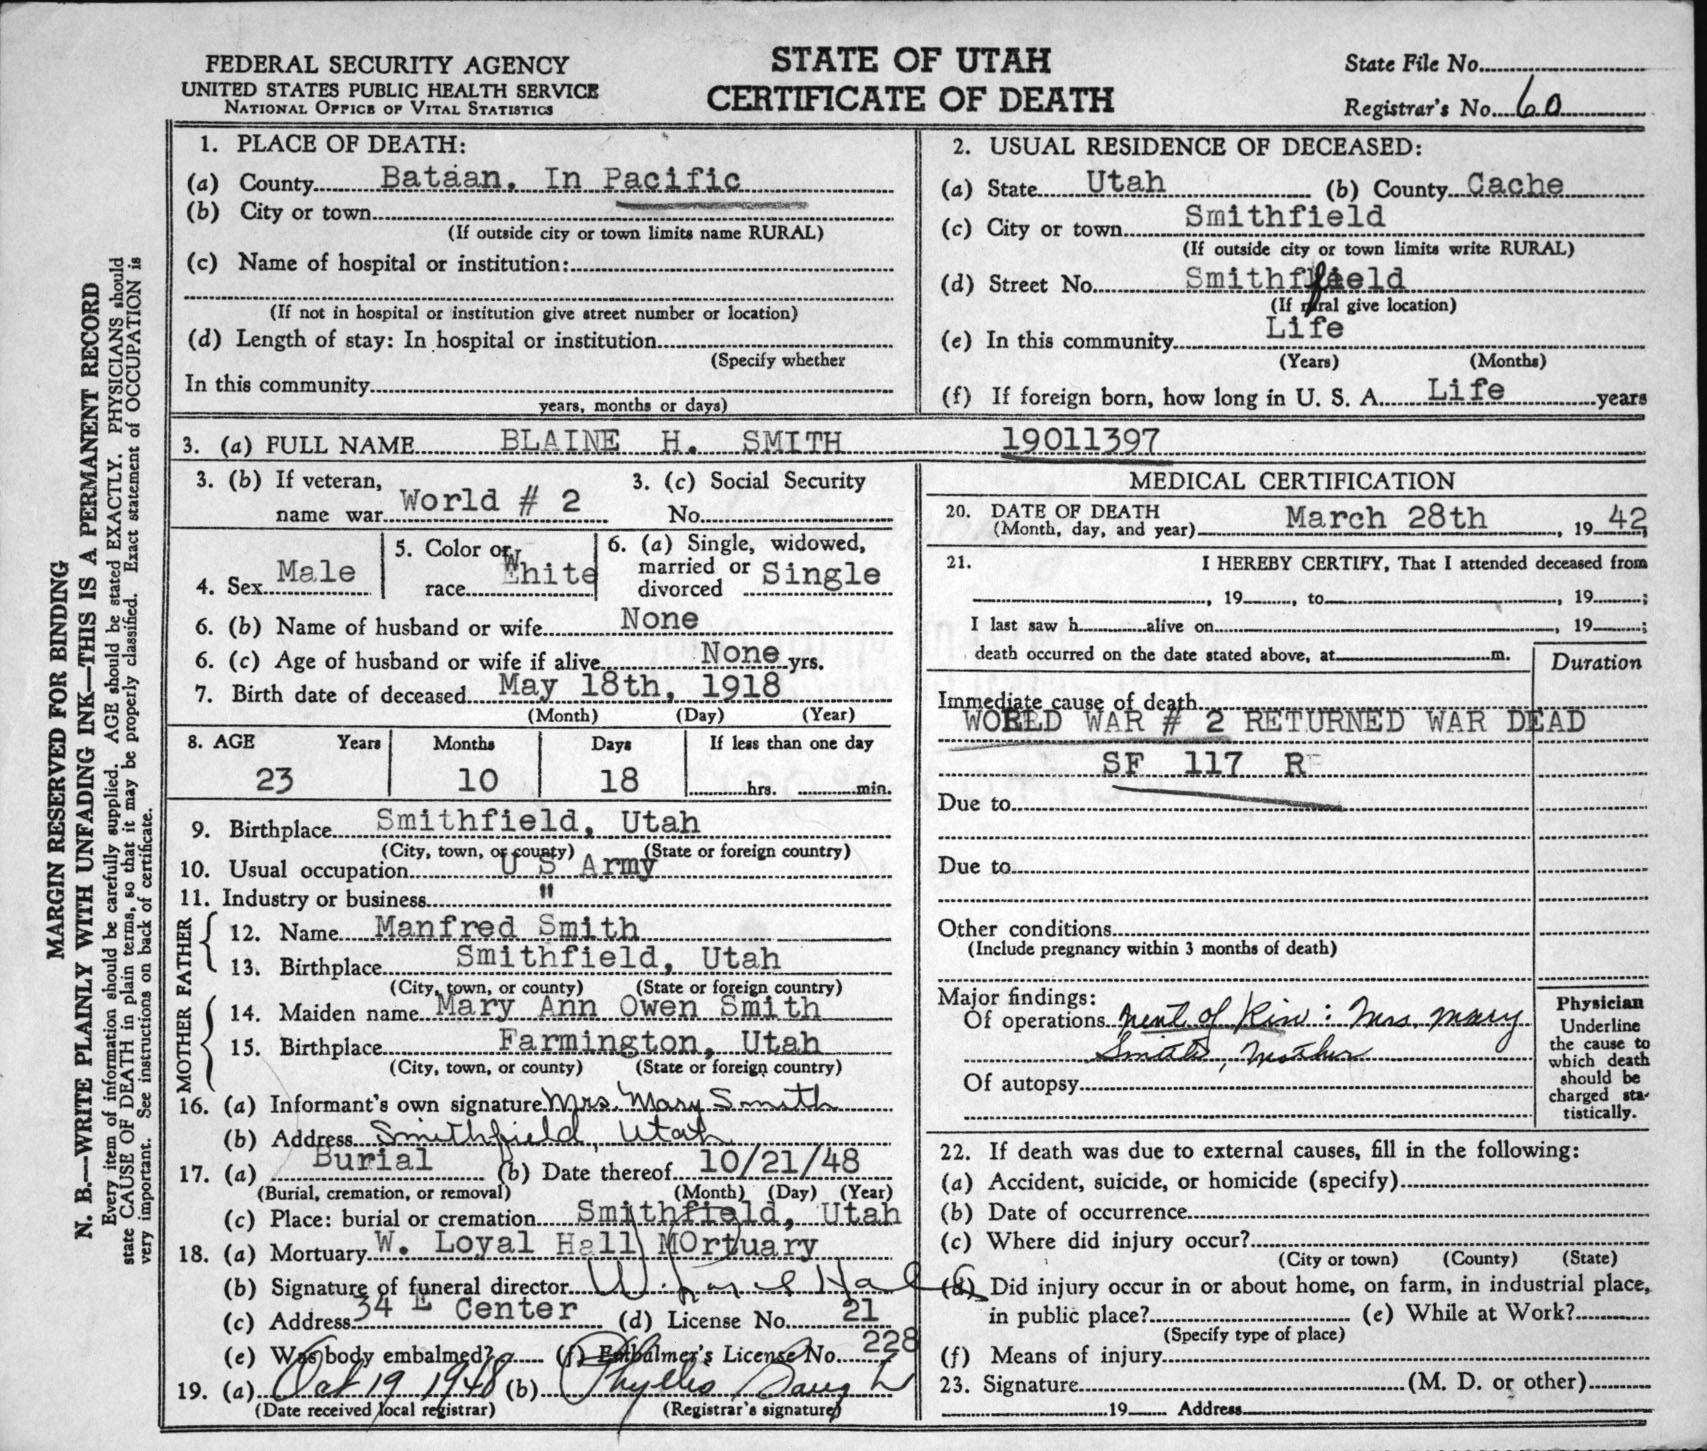 FEDERAL SECURITY AGENCY
UNITED STATES PUBLIC HEALTH SERVICE
NATIONAL OFFICE OF VITAL STATISTICS
STATE OF UTAH
CERTIFICATE OF DEATH
State File No.
Registrar's No. 60
MARGIN RESERVED FOR BINDING
N. B.—WRITE PLAINLY WITH UNFADING INK—THIS IS A PERMANENT RECORD
Every item of information should be carefully supplied. AGE should be stated EXACTLY. PHYSICIANS should
state CAUSE OF DEATH in plain terms, so that it may be properly classified. Exact statement of OCCUPATION is
very important. See instructions on back of certificate.
1. PLACE OF DEATH:
(a) County Bataan. In Pacific
(b) City or town
(If outside city or town limits name RURAL)
(c) Name of hospital or institution:
(If not in hospital or institution give street number or location)
(d) Length of stay: In hospital or institution
(Specify whether
In this community
years, months or days)
2. USUAL RESIDENCE OF DECEASED:
(a) State Utah (b) County Cache
(c) City or town Smithfield
(If outside city or town limits write RURAL)
(d) Street No. Smithfield
(If rural give location)
(e) In this community Life
(Years) (Months)
(f) If foreign born, how long in U. S. A. Life years
3. (a) FULL NAME BLAINE H. SMITH 19011397
3. (b) If veteran,
name war World # 2
3. (c) Social Security
No.
4. Sex Male
5. Color or
race White
6. (a) Single, widowed,
married or
divorced Single
6. (b) Name of husband or wife None
6. (c) Age of husband or wife if alive None yrs.
7. Birth date of deceased May 18th, 1918
(Month) (Day) (Year)
8. AGE Years Months Days If less than one day
23 10 18 hrs. min.
9. Birthplace Smithfield, Utah
(City, town, or county) (State or foreign country)
10. Usual occupation U S Army
11. Industry or business "
FATHER
12. Name Manfred Smith
13. Birthplace Smithfield, Utah
(City, town, or county) (State or foreign country)
MOTHER
14. Maiden name Mary Ann Owen Smith
15. Birthplace Farmington, Utah
(City, town, or county) (State or foreign country)
16. (a) Informant's own signature Mrs. Mary Smith
(b) Address Smithfield, Utah
17. (a) Burial (b) Date thereof 10/21/48
(Burial, cremation, or removal) (Month) (Day) (Year)
(c) Place: burial or cremation Smithfield, Utah
18. (a) Mortuary W. Loyal Hall MOrtuary
(b) Signature of funeral director W. Loyal Hall
(c) Address 34 E Center (d) License No. 21
(e) Was body embalmed? (f) Embalmer's License No. 228
19. (a) Oct 19 1948 (b) Phyllis Baugh
(Date received local registrar) (Registrar's signature)
MEDICAL CERTIFICATION
20. DATE OF DEATH
(Month, day, and year) March 28th, 19 42
21. I HEREBY CERTIFY, That I attended deceased from
, 19 , to , 19 ;
I last saw h alive on , 19 ;
death occurred on the date stated above, at m.
Duration
Immediate cause of death
WORLD WAR # 2 RETURNED WAR DEAD
SF 117 R
Due to
Due to
Other conditions
(Include pregnancy within 3 months of death)
Major findings:
Of operations Next of Kin: Mrs Mary
Smith, Mother
Of autopsy
Physician
Underline
the cause to
which death
should be
charged sta-
tistically.
22. If death was due to external causes, fill in the following:
(a) Accident, suicide, or homicide (specify)
(b) Date of occurrence
(c) Where did injury occur?
(City or town) (County) (State)
(d) Did injury occur in or about home, on farm, in industrial place,
in public place? (e) While at Work?
(Specify type of place)
(f) Means of injury
23. Signature (M. D. or other)
19 Address